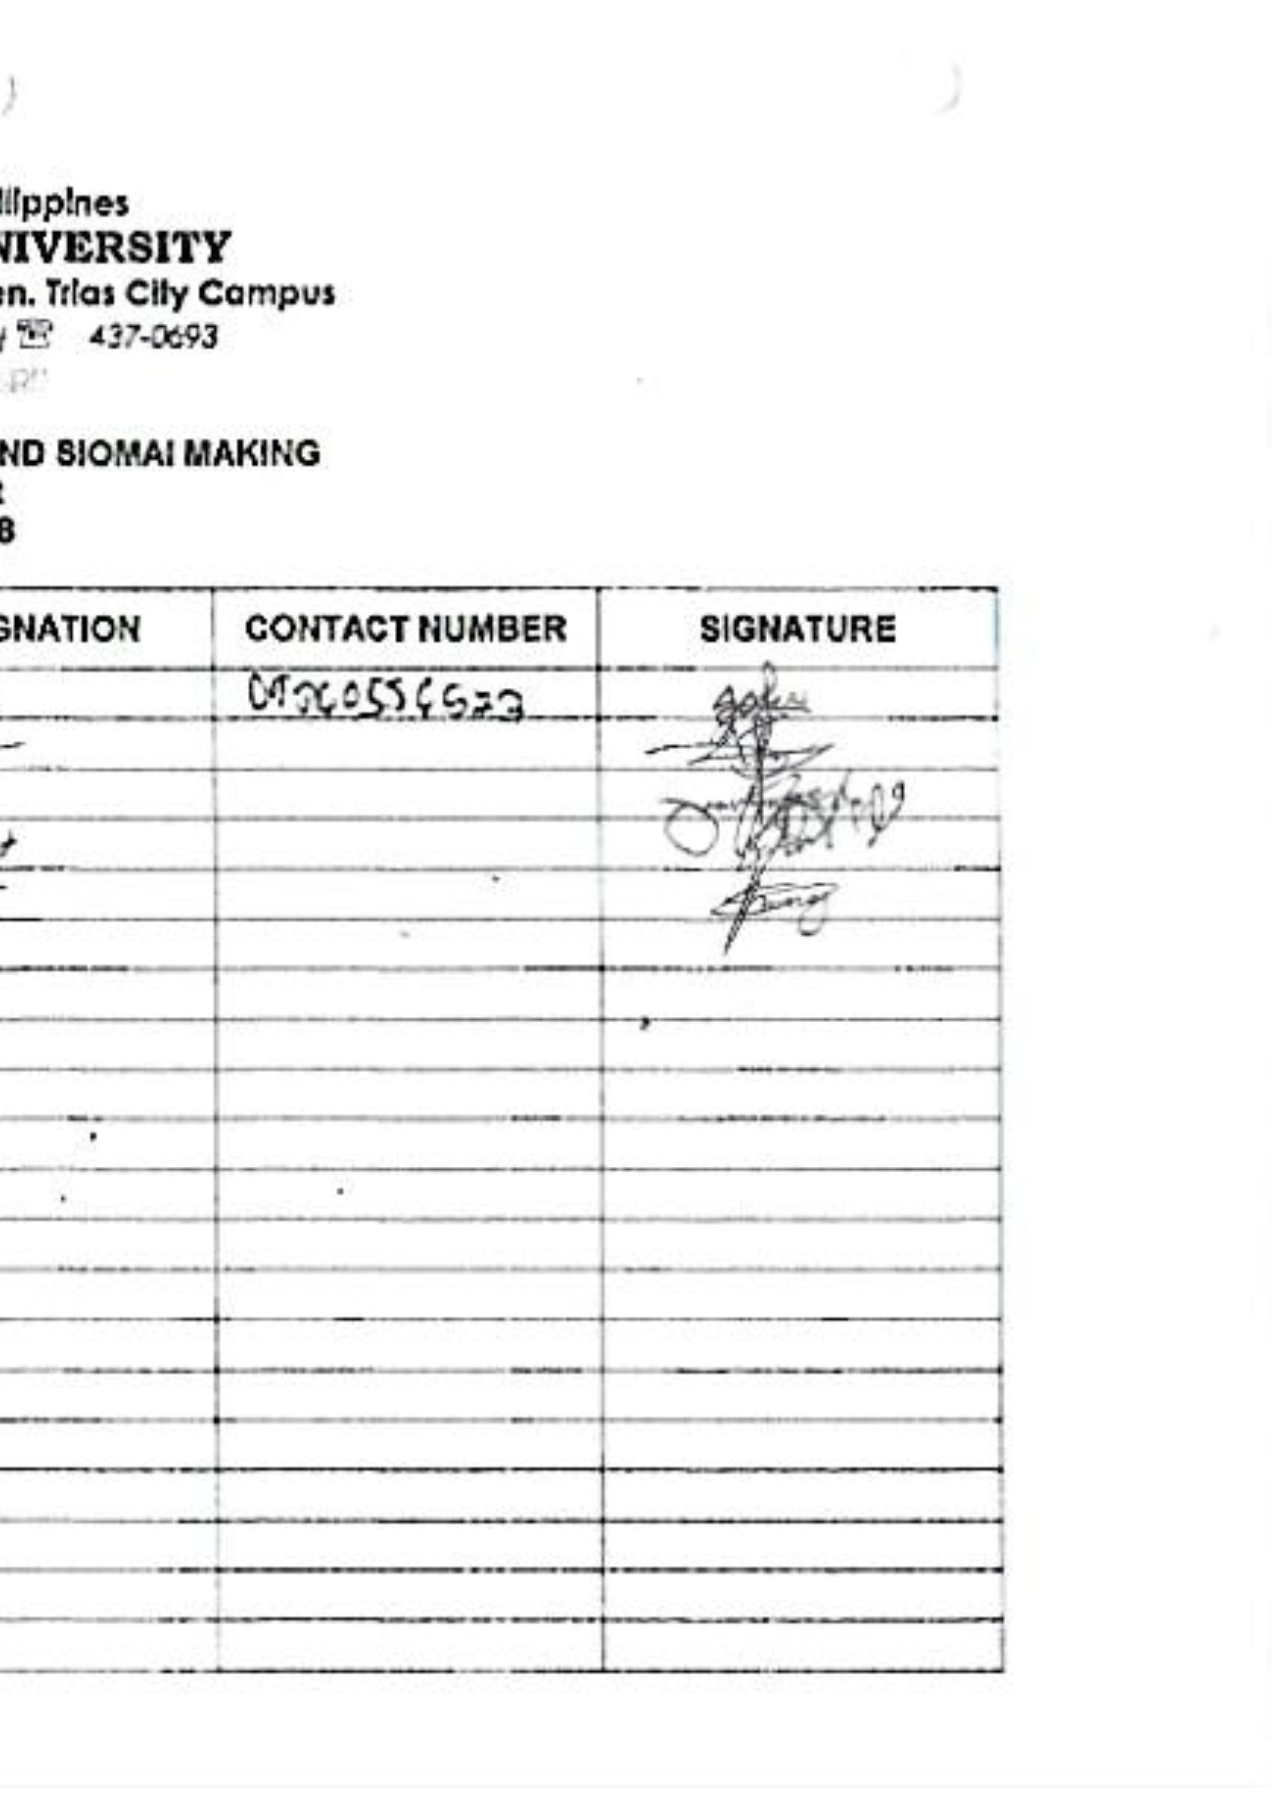 ilippines
NIVERSITY
en. Trias City Campus
437-0693
ND SIOMAI MAKING
8
GNATION CONTACT NUMBER SIGNATURE